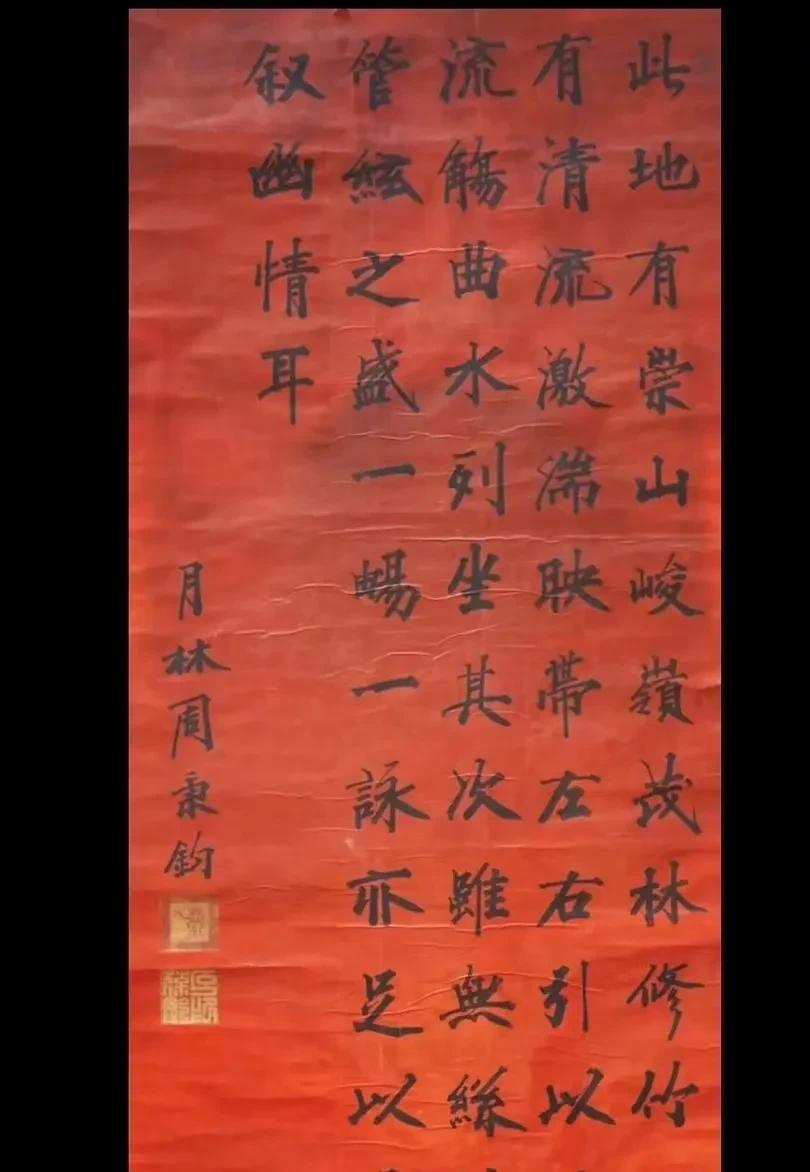 此地有崇山峻嶺茂林修竹
有清流激湍映帶左右引以
流觴曲水列坐其次雖無絲
管絃之盛一暢一詠亦足以
叙幽情耳
月林周秉鈞